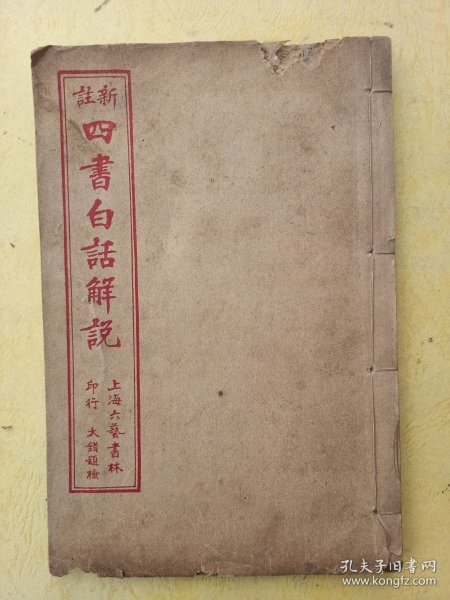 新註
四書白話解說
上海六藝書林
印行 太錯題檢
孔夫子旧书网
www.kongfz.com